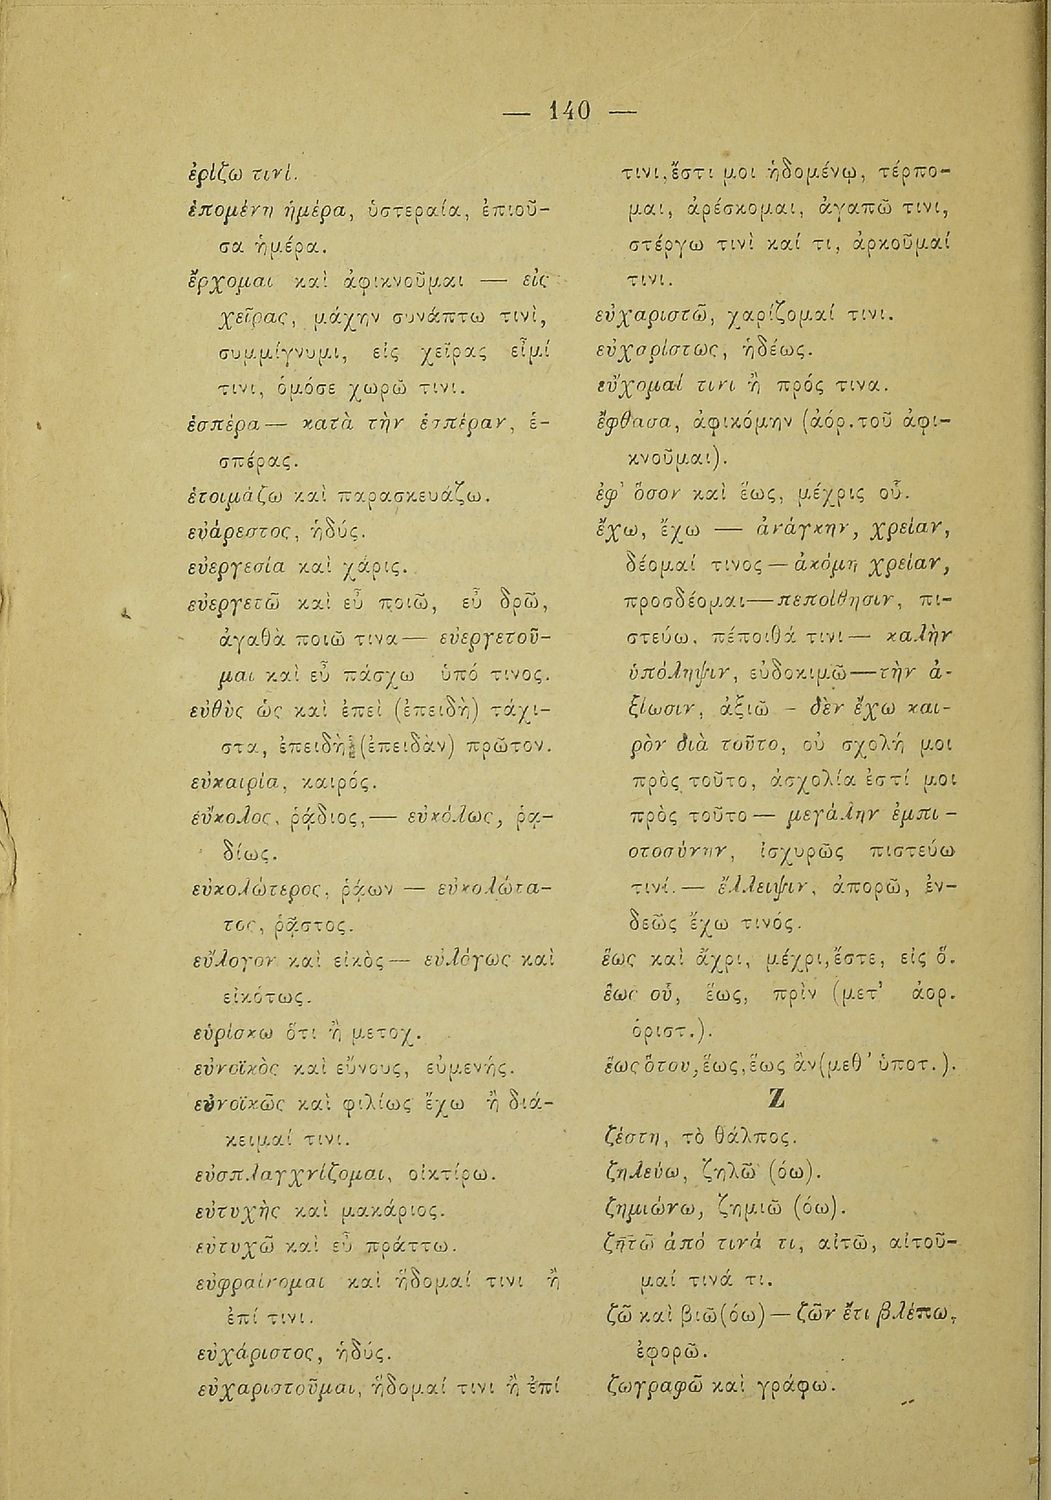 — 140 —
ἐρίζω τινί.
ἑπομένη ἡμέρα, ὑστεραία, ἐπιοῦ-
σα ἡμέρα.
ἔρχομαι καὶ ἀφικνοῦμαι — εἰς
χεῖρας, μάχην συνάπτω τινί,
συμμίγνυμι, εἰς χεῖρας εἶμί
τινι, ὁμόσε χωρῶ τινι.
ἑσπέρα — κατὰ τὴν ἑσπέραν, ἑ-
σπέρας.
ἑτοιμάζω καὶ παρασκευάζω.
εὐάρεστος, ἡδύς.
εὐεργεσία καὶ χάρις.
εὐεργετῶ καὶ εὖ ποιῶ, εὖ δρῶ,
ἀγαθὰ ποιῶ τινα — εὐεργετοῦ-
μαι καὶ εὖ πάσχω ὑπό τινος.
εὐθὺς ὡς καὶ ἐπεὶ (ἐπειδὴ) τάχι-
στα, ἐπειδὴ (ἐπειδὰν) πρῶτον.
εὐκαιρία, καιρός.
εὔκολος, ῥᾴδιος, — εὐκόλως, ῥᾳ-
δίως.
εὐκολώτερος, ῥᾴων — εὐκολώτα-
τος, ῥᾷστος.
εὔλογον καὶ εἰκὸς — εὐλόγως καὶ
εἰκότως.
εὑρίσκω ὅτι ἢ μετοχ.
εὐνοϊκὸς καὶ εὔνους, εὐμενής.
εὐνοϊκῶς καὶ φιλίως ἔχω ἢ διά-
κειμαί τινι.
εὐσπλαγχνίζομαι, οἰκτίρω.
εὐτυχὴς καὶ μακάριος.
εὐτυχῶ καὶ εὖ πράττω.
εὐφραίνομαι καὶ ἥδομαί τινι ἢ
ἐπί τινι.
εὐχάριστος, ἡδύς.
εὐχαριστοῦμαι, ἥδομαί τινι ἢ ἐπί
τινι, ἔστι μοι ἡδομένῳ, τέρπο-
μαι, ἀρέσκομαι, ἀγαπῶ τινι,
στέργω τινὶ καί τι, ἀρκοῦμαί
τινι.
εὐχαριστῶ, χαρίζομαί τινι.
εὐχαρίστως, ἡδέως.
εὔχομαί τινι ἢ πρός τινα.
ἔφθασα, ἀφικόμην (ἀόρ. τοῦ ἀφι-
κνοῦμαι).
ἐφ' ὅσον καὶ ἕως, μέχρις οὗ.
ἔχω, ἔχω — ἀνάγκην, χρείαν,
δέομαί τινος — ἀκόμη χρείαν,
προσδέομαι — πεποίθησιν, πι-
στεύω, πέποιθά τινι — καλὴν
ὑπόληψιν, εὐδοκιμῶ — τὴν ἀ-
ξίωσιν, ἀξιῶ - δὲν ἔχω και-
ρὸν διὰ τοῦτο, οὐ σχολή μοι
πρὸς τοῦτο, ἀσχολία ἐστί μοι
πρὸς τοῦτο — μεγάλην ἐμπι-
στοσύνην, ἰσχυρῶς πιστεύω
τινί. — ἔλλειψιν, ἀπορῶ, ἐν-
δεῶς ἔχω τινός.
ἕως καὶ ἄχρι, μέχρι, ἔστε, εἰς ὅ.
ἕως οὗ, ἕως, πρὶν (μετ' ἀορ.
ὁριστ.).
ἕως ὅτου, ἕως, ἕως ἂν (μεθ' ὑποτ.).
Ζ
ζέστη, τὸ θάλπος.
ζηλεύω, ζηλῶ (όω).
ζημιώνω, ζημιῶ (όω).
ζητῶ ἀπό τινά τι, αἰτῶ, αἰτοῦ-
μαί τινά τι.
ζῶ καὶ βιῶ (όω) — ζῶν ἔτι βλέπω,
ἐφορῶ.
ζωγραφῶ καὶ γράφω.